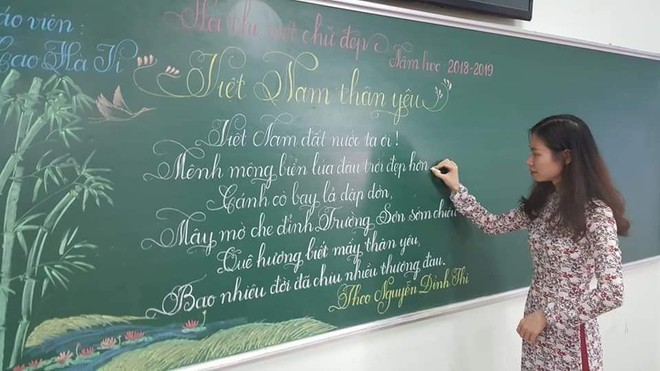 Giáo viên:
Cao Hà Ti
Hội thi viết chữ đẹp
Năm học 2018-2019
Việt Nam thân yêu
Việt Nam đất nước ta ơi!
Mênh mông biển lúa đâu trời đẹp hơn
Cánh cò bay lả dập dờn,
Mây mờ che đỉnh Trường Sơn sớm chiều
Quê hương biết mấy thân yêu,
Bao nhiêu đời đã chịu nhiều thương đau.
Theo Nguyễn Đình Thi